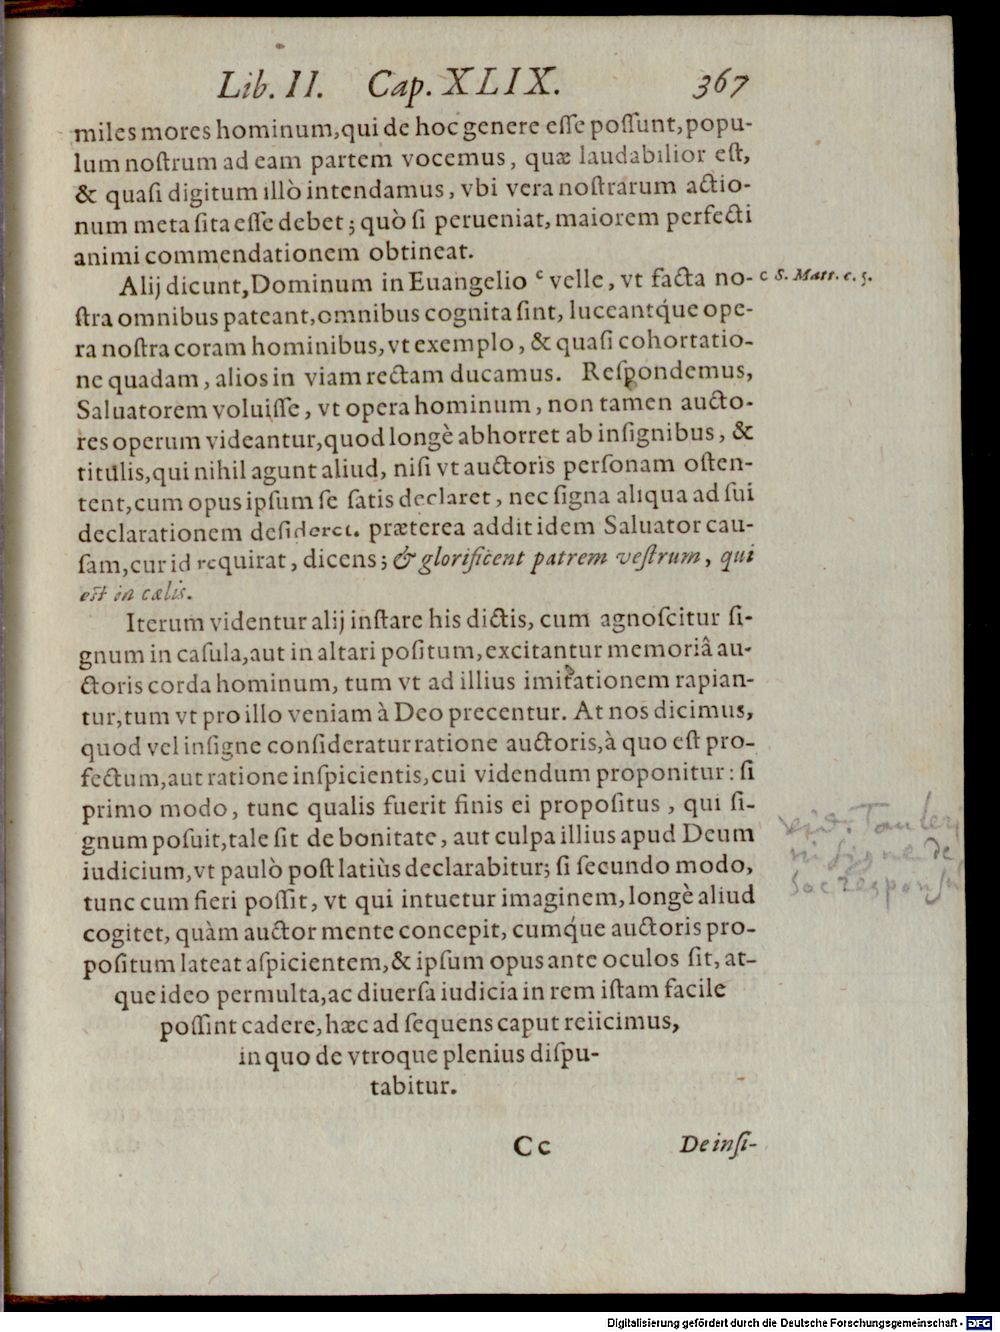 Lib. II. Cap. XLIX. 367
miles mores hominum, qui de hoc genere eſſe poſſunt, popu-
lum noſtrum ad eam partem vocemus, quæ laudabilior eſt,
& quaſi digitum illò intendamus, vbi vera noſtrarum actio-
num meta ſita eſſe debet; quò ſi perueniat, maiorem perfecti
animi commendationem obtineat.
Alij dicunt, Dominum in Euangelio ᶜ velle, vt facta no-
c S. Matt. c. 5.
ſtra omnibus pateant, omnibus cognita ſint, luceantq́ue ope-
ra noſtra coram hominibus, vt exemplo, & quaſi cohortatio-
ne quadam, alios in viam rectam ducamus. Reſpondemus,
Saluatorem voluiſſe, vt opera hominum, non tamen aucto-
res operum videantur, quod longè abhorret ab inſignibus, &
titulis, qui nihil agunt aliud, niſi vt auctoris perſonam oſten-
tent, cum opus ipſum ſe ſatis declaret, nec ſigna aliqua ad ſui
declarationem deſideret. præterea addit idem Saluator cau-
ſam, cur id requirat, dicens; & glorificent patrem veſtrum, qui
eſt in cælis.
Iterum videntur alij inſtare his dictis, cum agnoſcitur ſi-
gnum in caſula, aut in altari poſitum, excitantur memoriâ au-
ctoris corda hominum, tum vt ad illius imitationem rapian-
tur, tum vt pro illo veniam à Deo precentur. At nos dicimus,
quod vel inſigne conſideratur ratione auctoris, à quo eſt pro-
fectum, aut ratione inſpicientis, cui videndum proponitur: ſi
primo modo, tunc qualis fuerit finis ei propoſitus, qui ſi-
gnum poſuit, tale ſit de bonitate, aut culpa illius apud Deum
iudicium, vt paulò poſt latiùs declarabitur; ſi ſecundo modo,
tunc cum fieri poſſit, vt qui intuetur imaginem, longè aliud
cogitet, quàm auctor mente concepit, cumq́ue auctoris pro-
poſitum lateat aſpicientem, & ipſum opus ante oculos ſit, at-
que ideo permulta, ac diuerſa iudicia in rem iſtam facile
poſſint cadere, hæc ad ſequens caput reiicimus,
in quo de vtroque plenius diſpu-
tabitur.
Cc De inſi-
Digitalisierung gefördert durch die Deutsche Forschungsgemeinschaft - DFG